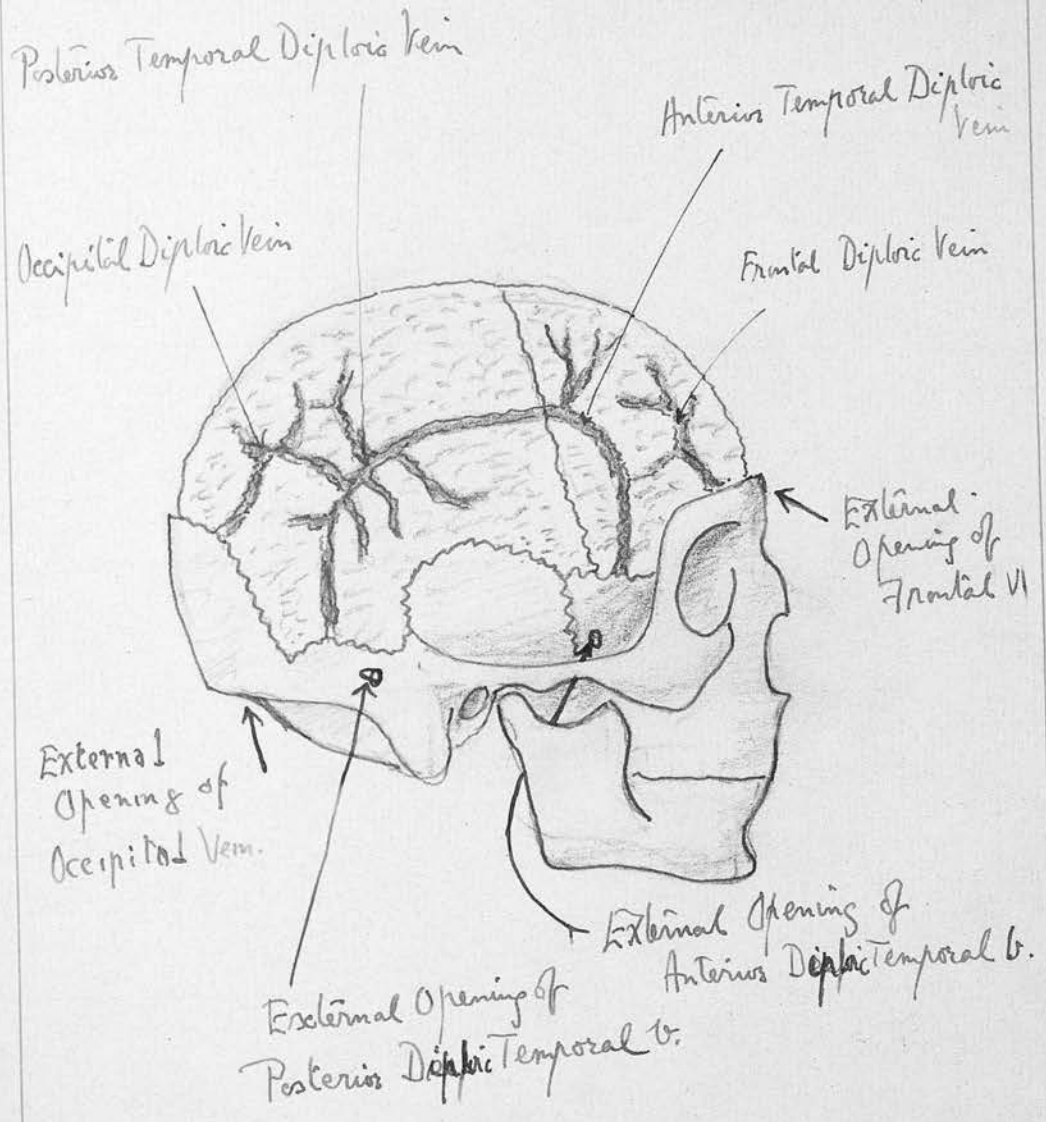 Posterior Temporal Diploic Vein
Anterior Temporal Diploic
Vein
Occipital Diploic Vein
Frontal Diploic Vein
External
Opening of
Frontal
External
Opening of
Occipital Vein.
External Opening of
Anterior Diploic Temporal v.
External Opening of
Posterior Diploic Temporal v.